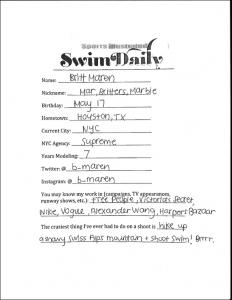 Sports Illustrated
Swim Daily
Name: Britt Maren
Nickname: Mar, Britters, Marble
Birthday: May 17
Hometown: Houston, TX
Current City: NYC
NYC Agency: Supreme
Years Modeling: 7
Twitter: @ b-maren
Instagram: @ b-maren
You may know my work in (campaigns, TV appearances,
runway shows, etc.) Free People, Victoria's Secret,
Nike, Vogue, Alexander Wang, Harpers Bazaar
The craziest thing I've ever had to do on a shoot is hike up
a snowy Swiss Alps mountain + shoot swim! Brrrr.